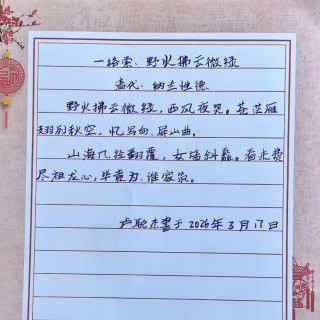 一络索、野火拂云微绿
清代、纳兰性德
野火拂云微绿,西风夜哭。苍茫雁
翅列秋空,忆写向、屏山曲。
山海几经翻覆,女墙斜矗。看来费
尽祖龙心,毕竟为、谁家筑。
卢 杰書于2026年3月17日